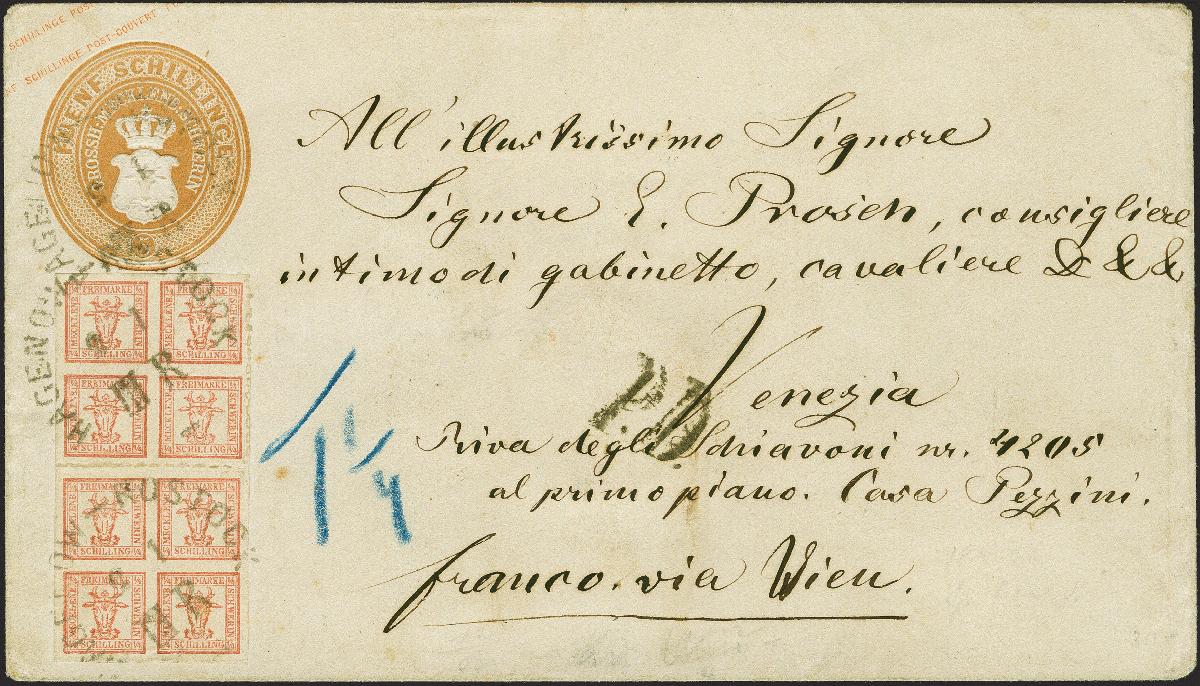 SCHILLINGE POST
SCHILLINGE POST-COUVERT
FUENF SCHILLINGE
GROSSH. MECKLENB. SCHWERIN
All' illustrissimo Signore
Signore E. Prosch, consigliere
intimo di gabinetto, cavaliere & & &
P.D.
Venezia
Riva degli Schiavoni nr. 4205
al primo piano. Casa Pezzini.
franco. via Wien.
1 1/4
HAGENOW ROSTOCK
2 1
III R
FREIMARKE
MECKLENB.
SCHWERIN
¼ SCHILLING ¼
FREIMARKE
MECKLENB.
SCHWERIN
¼ SCHILLING ¼
FREIMARKE
MECKLENB.
SCHWERIN
¼ SCHILLING ¼
FREIMARKE
MECKLENB.
SCHWERIN
¼ SCHILLING ¼
ROSTOCK
2 1
III R
FREIMARKE
MECKLENB.
SCHWERIN
¼ SCHILLING ¼
FREIMARKE
MECKLENB.
SCHWERIN
¼ SCHILLING ¼
FREIMARKE
MECKLENB.
SCHWERIN
¼ SCHILLING ¼
FREIMARKE
MECKLENB.
SCHWERIN
¼ SCHILLING ¼